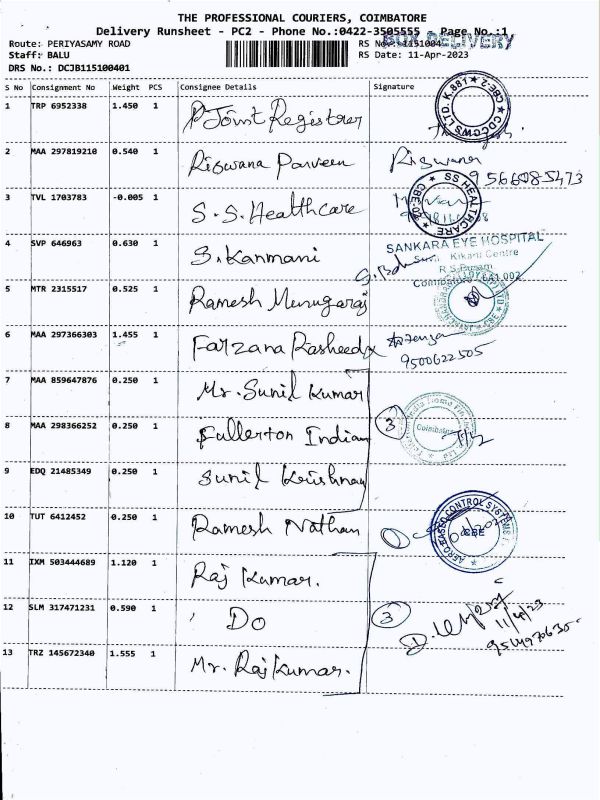 THE PROFESSIONAL COURIERS, COIMBATORE
Delivery Runsheet - PC2 - Phone No.:0422-3505555 Page No.:1
BOX DELIVERY
Route: PERIYASAMY ROAD RS No.: 1151004
Staff: BALU RS Date: 11-Apr-2023
DRS No.: DCJB115100401
S No Consignment No Weight PCS Consignee Details Signature
1 TRP 6952338 1.450 1 Joint Registrer
CDCCWS LTD. K.881 ★ CBE-2 ★
2 MAA 297819210 0.540 1 Riswana Parveen Riswana
9566085473
3 TVL 1703783 -0.005 1 S.S. Healthcare
★ SS HEALTHCARE ★ CBE-02
4 SVP 646963 0.630 1 S. Kanmani
SANKARA EYE HOSPITAL
Kikani Centre
R.S. Puram
Coimbatore - 641 002
5 MTR 2315517 0.525 1 Ramesh Murugaraj
6 MAA 297366303 1.455 1 Farzana Rasheed
9500622505
7 MAA 859647876 0.250 1 Mr. Sunil Kumar
8 MAA 298366252 0.250 1 Fullerton Indian 3
Coimbatore
9 EDQ 21485349 0.250 1 Sunil Krishnan
10 TUT 6412452 0.250 1 Ramesh Nathan 1
CONTROL SYSTEMS
CBE
11 IXM 503444689 1.120 1 Raj Kumar.
12 SLM 317471231 0.590 1 Do 3
11/4/23
13 TRZ 145672340 1.555 1 Mr. Rajkumar.